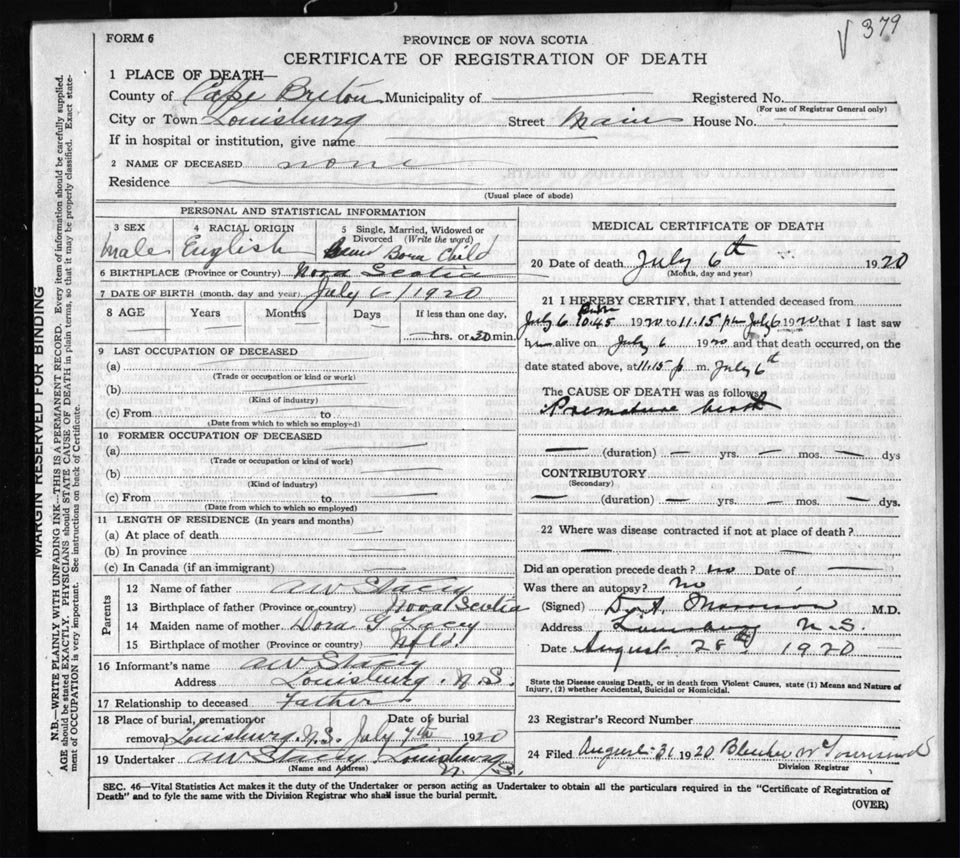 V 379
FORM 6
PROVINCE OF NOVA SCOTIA
CERTIFICATE OF REGISTRATION OF DEATH
1 PLACE OF DEATH—
County of Cape Breton Municipality of Registered No.
(For use of Registrar General only)
City or Town Louisburg Street Main House No.
If in hospital or institution, give name
2 NAME OF DECEASED none
Residence
(Usual place of abode)
PERSONAL AND STATISTICAL INFORMATION
3 SEX 4 RACIAL ORIGIN 5 Single, Married, Widowed or Divorced (Write the word)
Male English Born Child
6 BIRTHPLACE (Province or Country) Nova Scotia
7 DATE OF BIRTH (month, day and year) July 6/1920
8 AGE Years Months Days If less than one day,
hrs. or 30 min.
9 LAST OCCUPATION OF DECEASED
(a)
(Trade or occupation or kind or work)
(b)
(Kind of industry)
(c) From to
(Date from which to which so employed)
10 FORMER OCCUPATION OF DECEASED
(a)
(Trade or occupation or kind of work)
(b)
(Kind of industry)
(c) From to
(Date from which to which so employed)
11 LENGTH OF RESIDENCE (In years and months)
(a) At place of death
(b) In province
(c) In Canada (if an immigrant)
Parents
12 Name of father AW Stacey
13 Birthplace of father (Province or country) Nova Scotia
14 Maiden name of mother Dora G Lacey
15 Birthplace of mother (Province or country) Nfld.
16 Informant's name AW Stacey
Address Louisburg. N.S.
17 Relationship to deceased Father
18 Place of burial, cremation or Date of burial
removal Louisburg. N.S. July 7th 1920
19 Undertaker AW Stacey Louisburg
(Name and Address) N.S.
MEDICAL CERTIFICATE OF DEATH
20 Date of death July 6th 1920
(Month, day and year)
21 I HEREBY CERTIFY, that I attended deceased from
July 6 10.45 1920 to 11.15 pm July 6 1920 that I last saw
him alive on July 6 1920 and that death occurred, on the
date stated above, at 11.15 p. m. July 6th
The CAUSE OF DEATH was as follows:
Premature birth
(duration) yrs. mos. dys
CONTRIBUTORY
(Secondary)
(duration) yrs. mos. dys.
22 Where was disease contracted if not at place of death?
Did an operation precede death? no Date of
Was there an autopsy? No
(Signed) Morrison M.D.
Address Louisburg N.S.
Date August 28th 1920
State the Disease causing Death, or in death from Violent Causes, state (1) Means and Nature of
Injury, (2) whether Accidental, Suicidal or Homicidal.
23 Registrar's Record Number
24 Filed August 31 1920 Townsend
Division Registrar
SEC. 46—Vital Statistics Act makes it the duty of the Undertaker or person acting as Undertaker to obtain all the particulars required in the "Certificate of Registration of
Death" and to fyle the same with the Division Registrar who shall issue the burial permit.
(OVER)
MARGIN RESERVED FOR BINDING
N.B.—WRITE PLAINLY WITH UNFADING INK—THIS IS A PERMANENT RECORD. Every item of information should be carefully supplied.
AGE should be stated EXACTLY. PHYSICIANS should STATE CAUSE OF DEATH in plain terms, so that it may be properly classified. Exact state-
ment of OCCUPATION is very important. See instructions on back of Certificate.